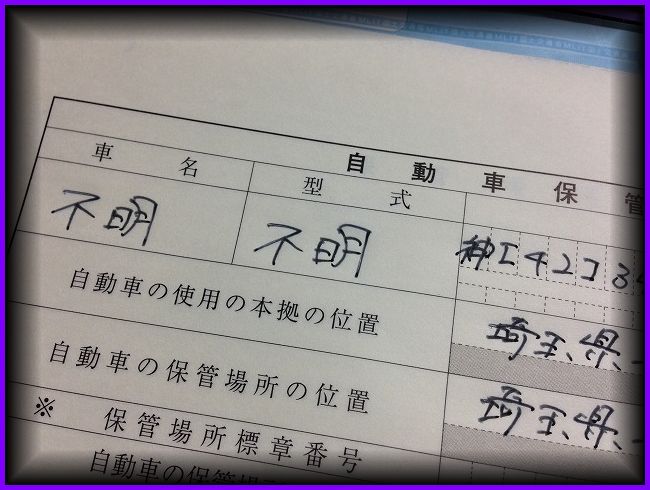 自動車保管
車名 型式
不明 不明 神工42コ8
自動車の使用の本拠の位置 埼玉県
自動車の保管場所の位置 埼玉県
※ 保管場所標章番号
自動車の保管場